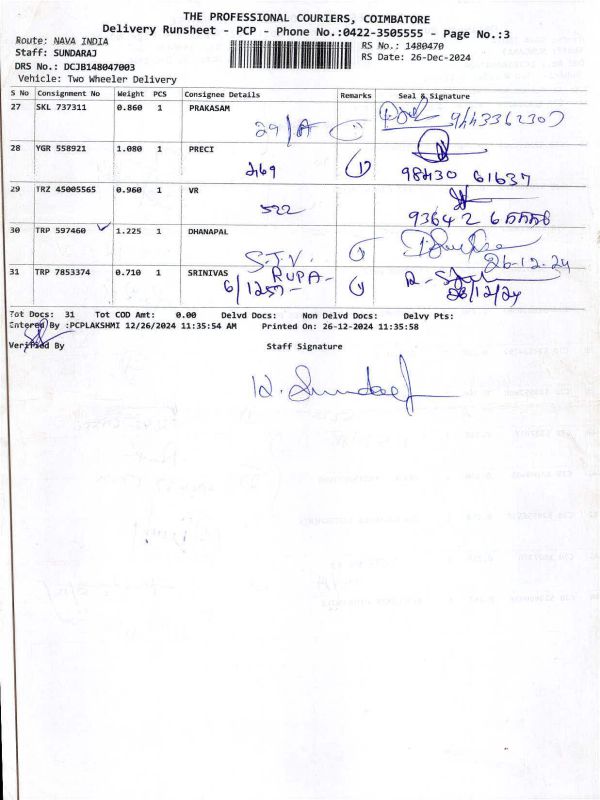 THE PROFESSIONAL COURIERS, COIMBATORE
Delivery Runsheet - PCP - Phone No.:0422-3505555 - Page No.:3
Route: NAVA INDIA
RS No.: 1480470
Staff: SUNDARAJ
RS Date: 26-Dec-2024
DRS No.: DCJB148047003
Vehicle: Two Wheeler Delivery
S No Consignment No Weight PCS Consignee Details Remarks Seal & Signature
27 SKL 737311 0.860 1 PRAKASAM
29/A
28 YGR 558921 1.080 1 PRECI
269 98430 61637
29 TRZ 45005565 0.960 1 VR
522
30 TRP 597460 1.225 1 DHANAPAL
S.T.V. 26-12-24
31 TRP 7853374 0.710 1 SRINIVAS RUPA-
6/1257- 26/12/24
Tot Docs: 31 Tot COD Amt: 0.00 Delvd Docs: Non Delvd Docs: Delvy Pts:
Entered By :PCPLAKSHMI 12/26/2024 11:35:54 AM Printed On: 26-12-2024 11:35:58
Verified By Staff Signature